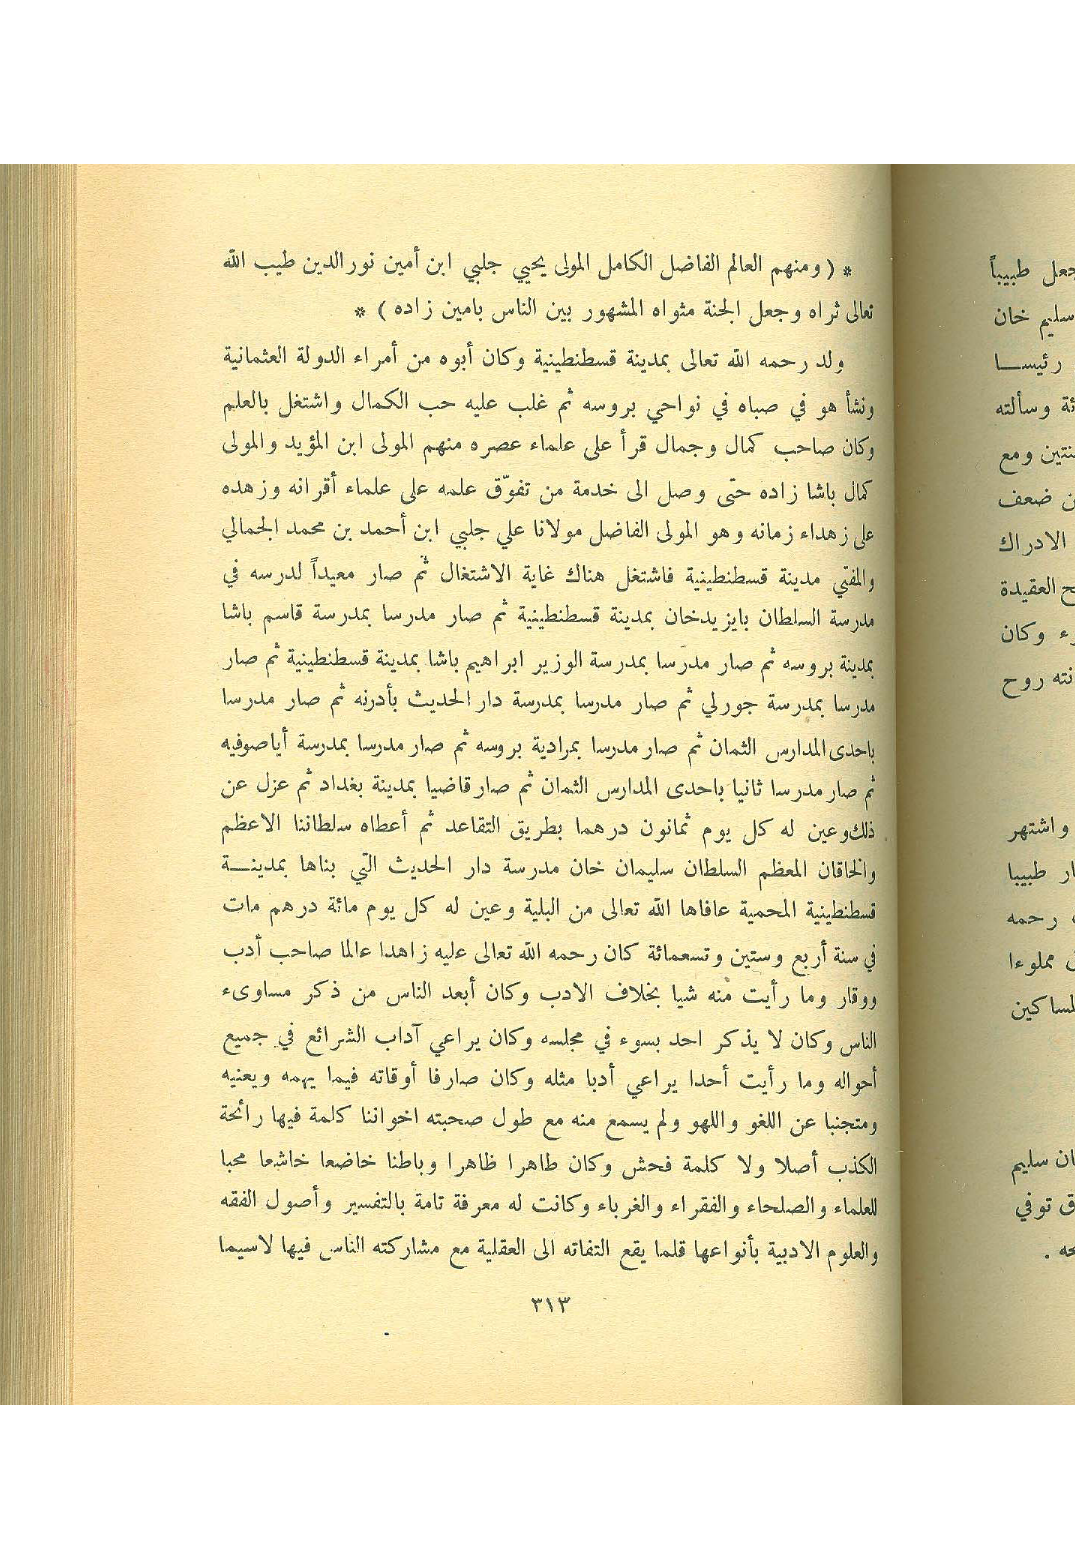 * ( ومنهم العالم الفاضل الكامل المولى يحيي جلبي ابن أمين نورالدين طيب الله
تعالى ثراه وجعل الجنة مثواه المشهور بين الناس بامين زاده ) *
ولد رحمه الله تعالى بمدينة قسطنطينية وكان أبوه من أمراء الدولة العثمانية
ونشأ هو في صباه في نواحي بروسه ثم غلب عليه حب الكمال واشتغل بالعلم
وكان صاحب كمال وجمال قرأ على علماء عصره منهم المولى ابن المؤيد والمولى
كمال باشا زاده حتى وصل الى خدمة من تفوّق علمه على علماء أقرانه وزهده
على زهداء زمانه وهو المولى الفاضل مولانا علي جلبي ابن أحمد بن محمد الجمالي
والمفتي مدينة قسطنطينية فاشتغل هناك غاية الاشتغال ثم صار معيداً لدرسه في
مدرسة السلطان بايزيدخان بمدينة قسطنطينية ثم صار مدرسا بمدرسة قاسم باشا
بمدينة بروسه ثم صار مدرسا بمدرسة الوزير ابراهيم باشا بمدينة قسطنطينية ثم صار
مدرسا بمدرسة جورلي ثم صار مدرسا بمدرسة دار الحديث بأدرنه ثم صار مدرسا
باحدى المدارس الثمان ثم صار مدرسا بمرادية بروسه ثم صار مدرسا بمدرسة أياصوفيه
ثم صار مدرسا ثانيا باحدى المدارس الثمان ثم صار قاضيا بمدينة بغداد ثم عزل عن
ذلك وعين له كل يوم ثمانون درهما بطريق التقاعد ثم أعطاه سلطاننا الاعظم
والخاقان المعظم السلطان سليمان خان مدرسة دار الحديث التي بناها بمدينــة
قسطنطينية المحمية عافاها الله تعالى من البلية وعين له كل يوم مائة درهم مات
في سنة أربع وستين وتسعمائة كان رحمه الله تعالى عليه زاهدا عالما صاحب أدب
ووقار وما رأيت منه شيا بخلاف الادب وكان أبعد الناس من ذكر مساوىء
الناس وكان لا يذكر احد بسوء في مجلسه وكان يراعي آداب الشرائع في جميع
أحواله وما رأيت أحدا يراعي أدبا مثله وكان صارفا أوقاته فيما يهمه ويعنيه
ومتجنبا عن اللغو واللهو ولم يسمع منه مع طول صحبته اخواننا كلمة فيها رائحة
الكذب أصلا ولا كلمة فحش وكان طاهرا ظاهرا وباطنا خاضعا خاشعا محبا
للعلماء والصلحاء والفقراء والغرباء وكانت له معرفة تامة بالتفسير وأصول الفقه
والعلوم الادبية بأنواعها قلما يقع التفاته الى العقلية مع مشاركته الناس فيها لاسيما
٣١٣
طبيباً
سليم خان
رئيســا
وسألته
ومع
ضعف
الادراك
العقيدة
وكان
روح
واشتهر
طبيبا
رحمه
مملوءا
سليم
توفي